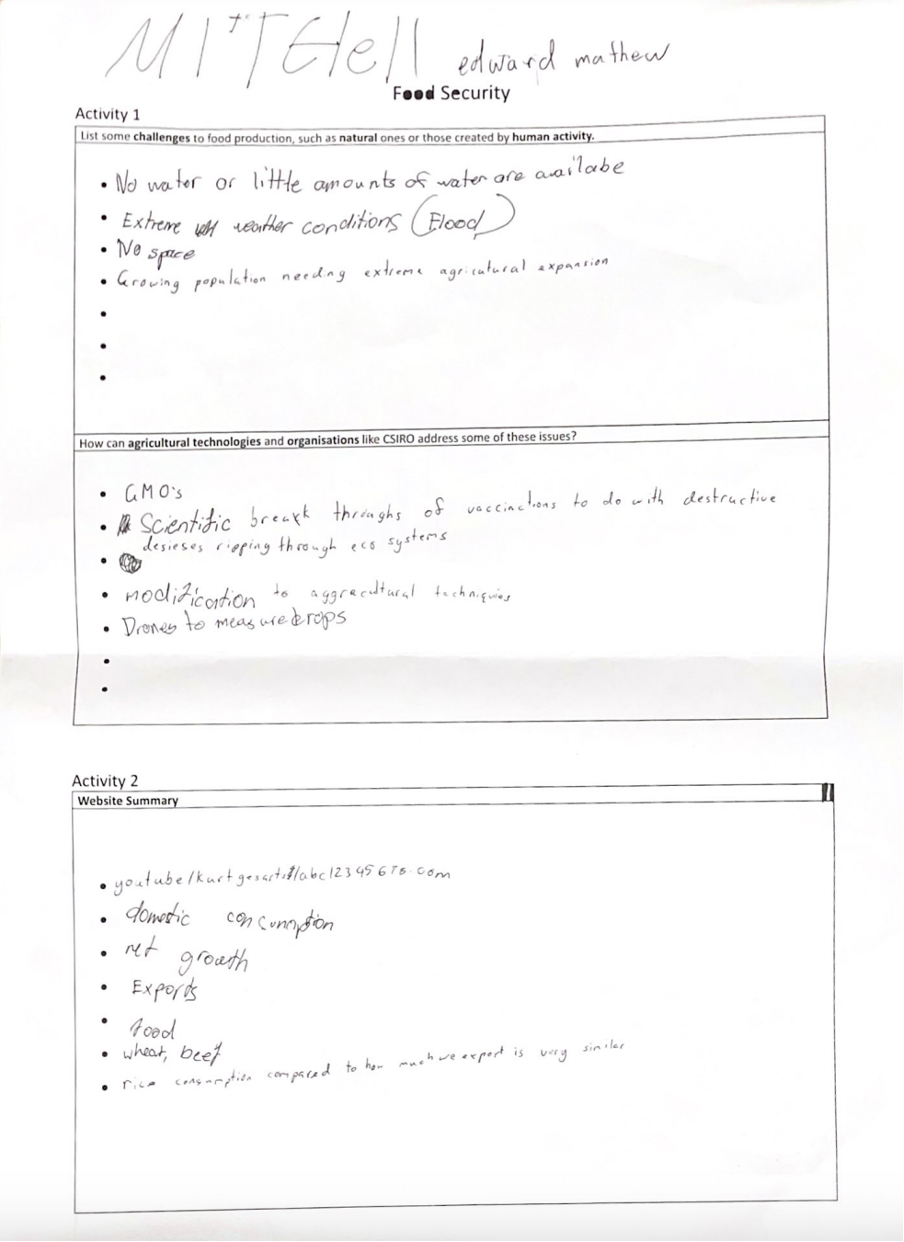 MITTchell edward mathew
Food Security
Activity 1
List some challenges to food production, such as natural ones or those created by human activity.
• No water or little amounts of water are availabe
• Extreme weather conditions (Flood)
• No space
• Growing population needing extreme agricultural expansion
•
•
•
How can agricultural technologies and organisations like CSIRO address some of these issues?
• GMO's
• Scientific break throughs of vaccinctions to do with destructive
desieses ripping through eco systems
•
• modification to aggracultural techniques
• Drones to measure crops
•
•
Activity 2
Website Summary
• youtube/kurtgesarti/abc12345678.com
• domestic consumption
• net growth
• Exports
• food
• wheat, beef
• rice consumption compared to how much we export is very similar